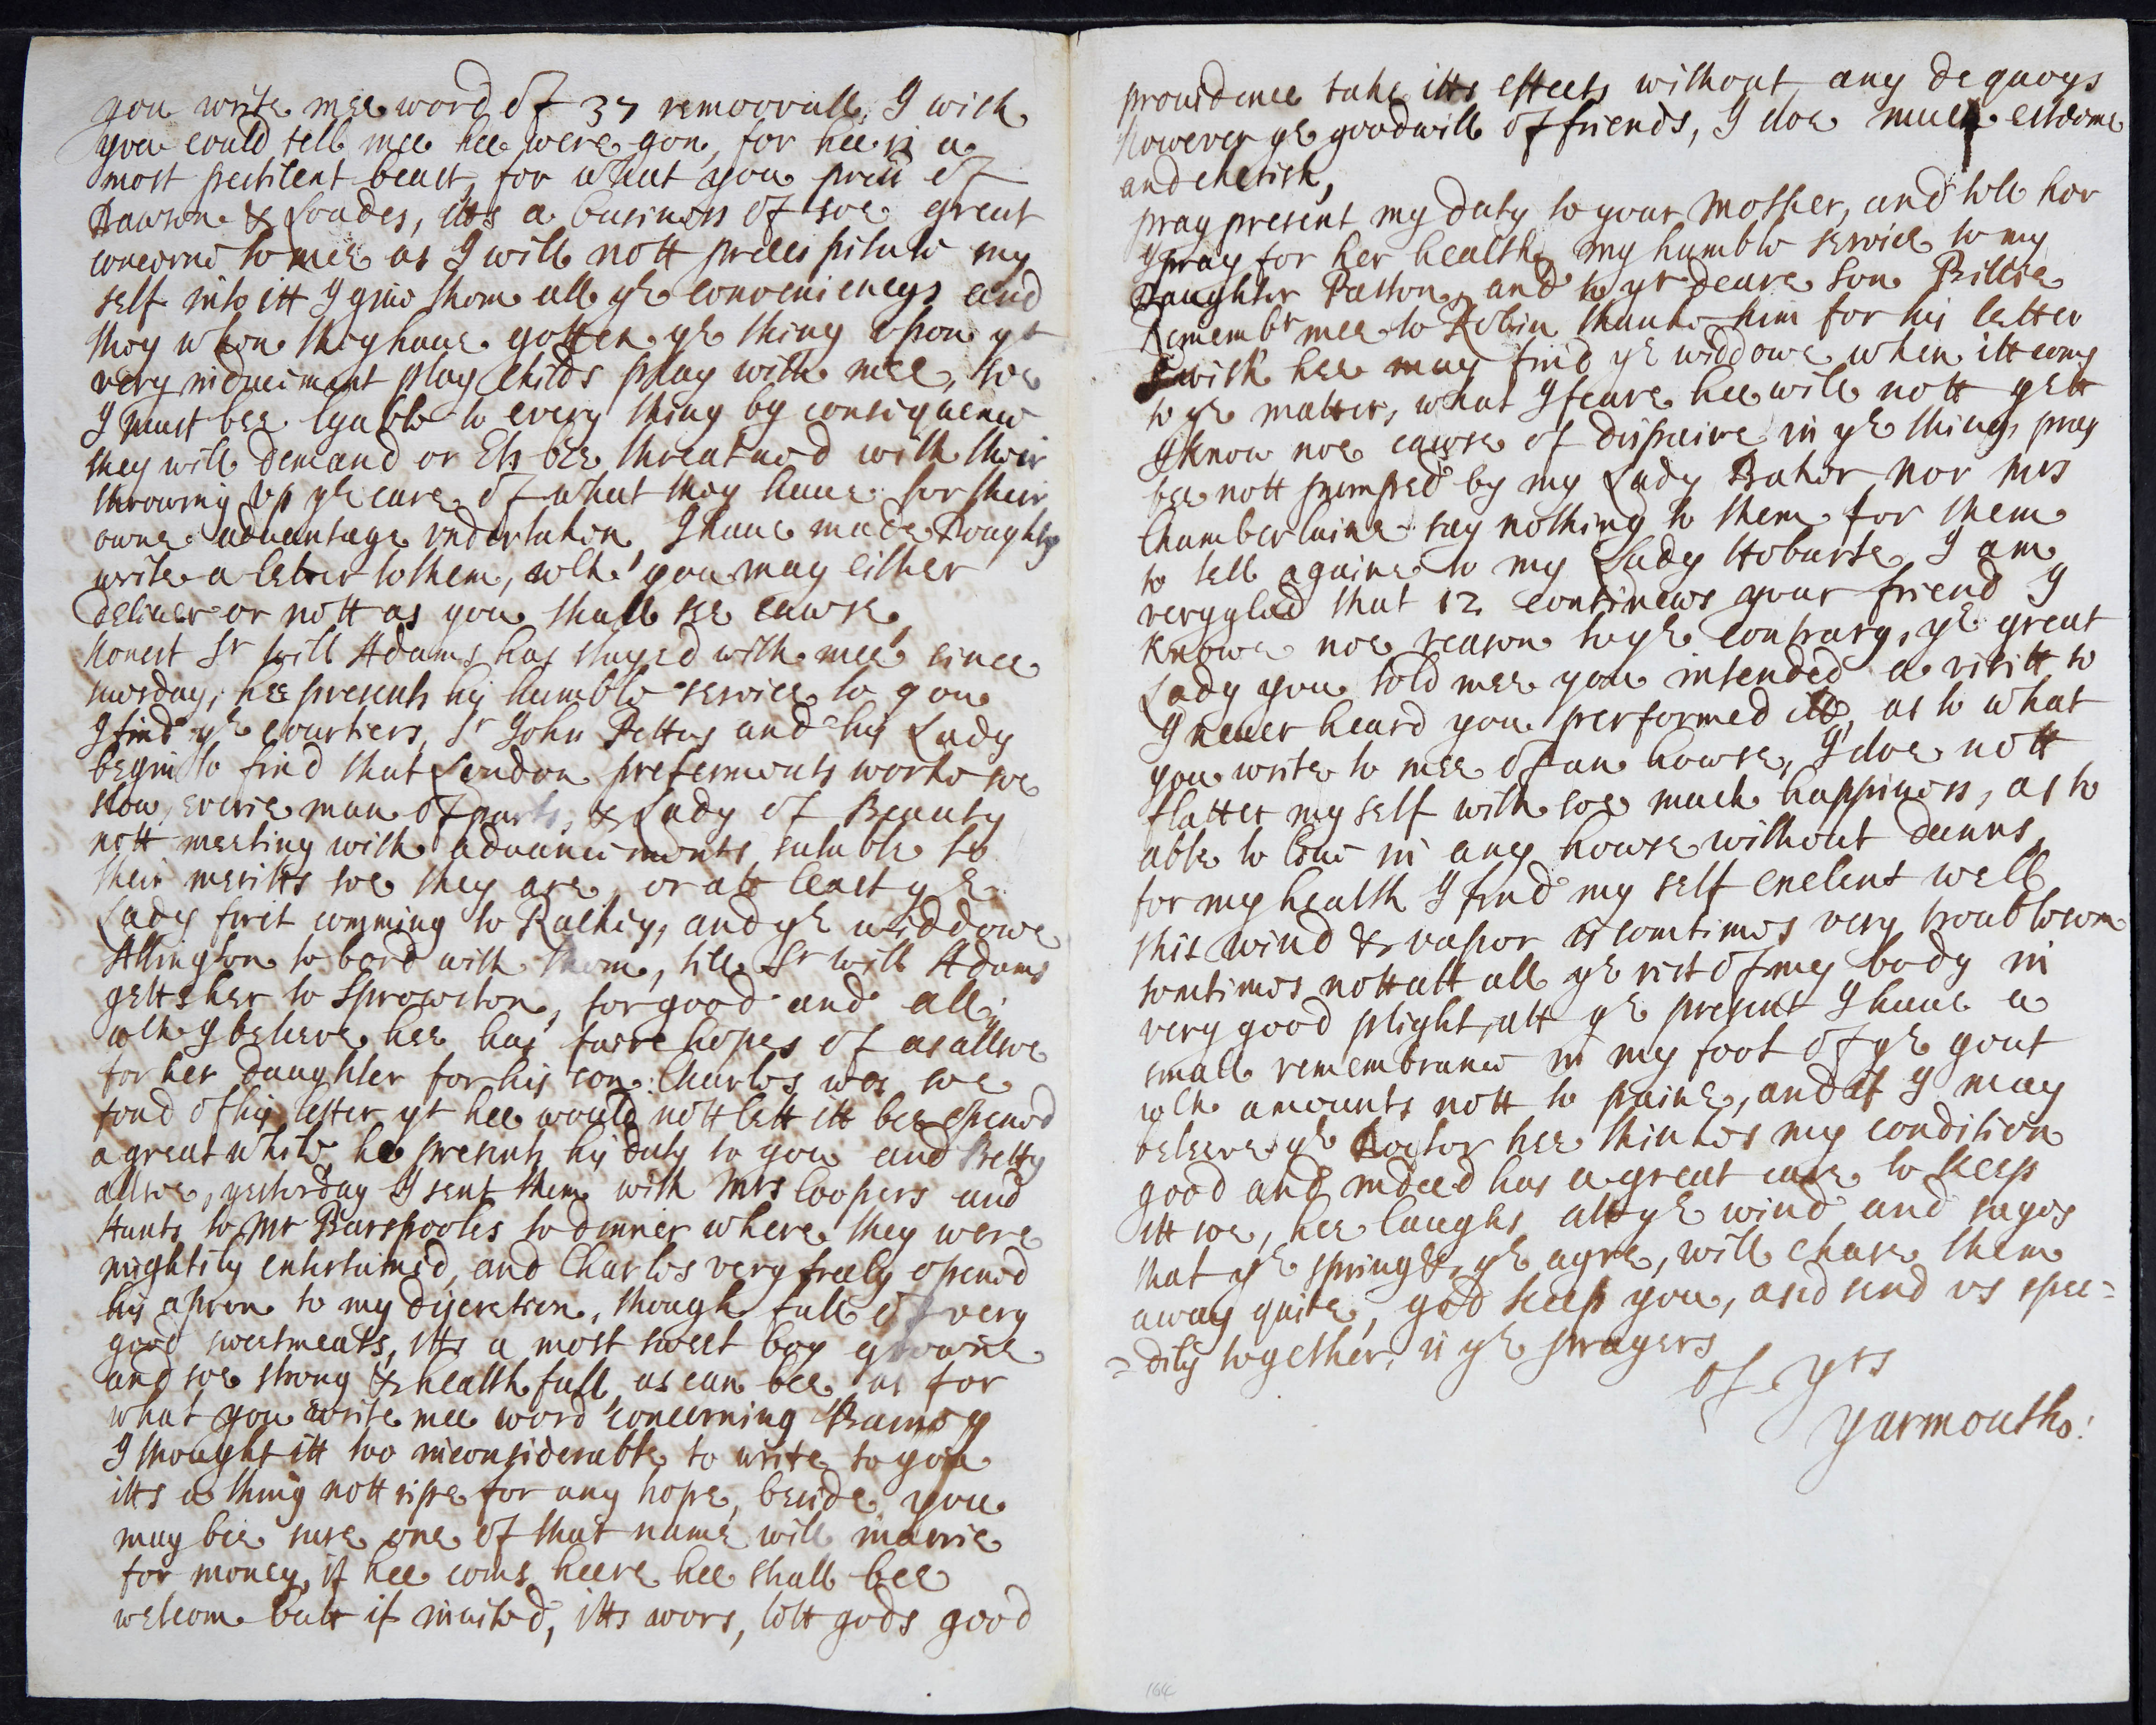 you write mee word of 37 removvall, I wish
you could tell mee hee were gon, for hee is a
most pestilent beast, for what you press of
Dawson & Loades, itts a business of soe great
concerne to mee as I will nott precipitate my
self into itt I give them all ye conveniencys and
they when they have gotten ye thing upon yt
very inducement play childs play with mee, soe
I must bee lyable to every thing by consiquence
they will demand or Els bee threatned with their
throwing up ye care of what they have for their
owne advantage undertaken, I have made Doughty
write a letter to them, wch you may either
deliver or nott as you shall see cawse,
honest Sr Will Adams has stayed with mee since
tuesday, hee presents his humble service to you
I find ye courtiers, Sr John Pettus and his Lady
begin to find that London preferments works soe
slow, everie man of parts, & Lady of Beauty
nott meeting with advancements sutable to
their meritts soe they are, or att least ye
Lady first comming to Rackey, and ye widdowe
Allington to bord with them, till Sr Will Adams
getts her to Sprowston, for good and all,
wch I beleeve hee has faire hopes of as allsoe
for her daughter for his son. Charles was soe
fond of his letter yt hee would nott lett itt bee opened
a great while, he presents his duty to you and Betty
allsoe, yesterday I sent them with Mrs Coopers and
Hunts to Mr Barspooles to dinner where they were
mightily entertained, and Charles very freely opened
his apron to my discretion, though full of very
good sweetmeats, itts a most sweet boy growne
and soe strong & healthfull, as can bee as for
what you write mee word concerning
I thought itt too inconsiderable to write to you
itts a thing nott ripe for any hope, beside you
may bee sure one of that name will marrie
for money, if hee coms heere hee shall bee
welcom butt if invited, itts wors, lett gods good
164
providence take itts effects without any dequoys
however ye goodwill of friends, I doe much esteeme
and cherish,
pray present my duty to your Mother, and tell her
I pray for her health my humble service to my
Daughter Paston, and to yr deare Son
Remembr mee to Robin thanke him for his letter
I wish hee may find ye widdowe when itt coms
to ye matter, what I feare hee will nott gett
I know noe cawse of dispaire in ye thing, pray
bee nott pumped by my Lady Baker nor Mrs
Chamberlaine say nothing to them for them
to tell againe to my Lady Hobarte, I am
very glad that 12 continews your friend I
knowe noe reason to ye contrary, ye great
Lady you told mee you intended a visitt to
I never heard you performed itt, as to what
you write to mee of an howse, I doe nott
flatter my self with soe much happiness, as to
able to live in any howse without dunns,
for my health I find my self exelent well
this wind & vapor is somtimes very troublesom
somtimes nott att all ye rest of my body in
very good plight, att ye present I have a
small remembrance in my foot of ye gout
wch amounts nott to paine, and if I may
beleeve ye Doctor hee thinkes my condition
good and indeed has a great care to keep
itt soe, hee laughs att ye wind and sayes
that ye spring & ye agre, will chase them
away quite, god keep you, and send us spee=
=dily together, is ye prayers
of yrs
Yarmouth: